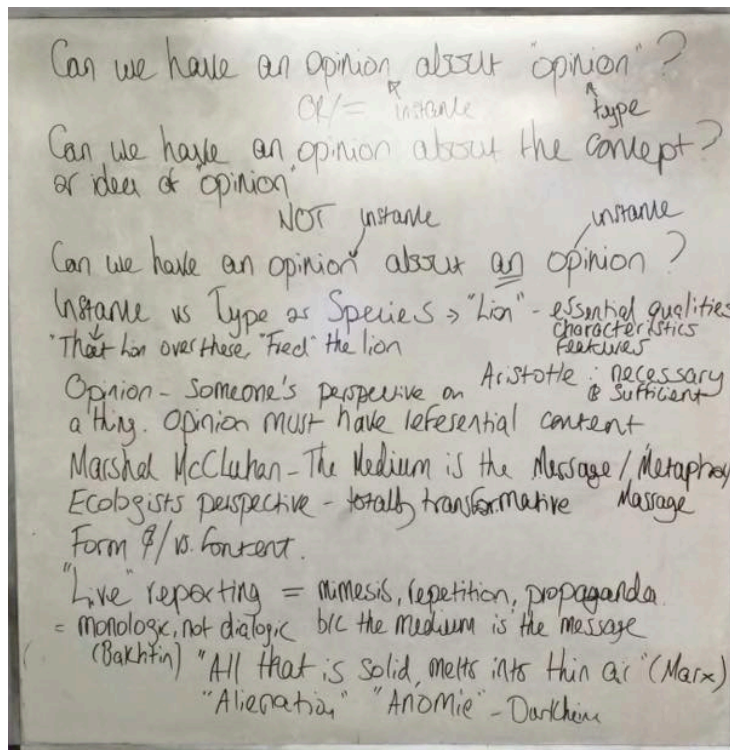 Can we have an opinion about "opinion"?
OR/= instance type
Can we have an opinion about the concept?
or idea of "opinion"
NOT instance instance
Can we have an opinion about an opinion?
Instance vs Type or Species → "Lion" - essential qualities
characteristics
"That Lion over there, "Fred" the lion features
Aristotle: necessary
& Sufficient
Opinion - Someone's perspective on
a thing. Opinion must have referential content
Marshal McCluhan - The Medium is the Message / Metaphor
Ecologists perspective - totally transformative Massage
Form &/vs. Content.
"Live" reporting = mimesis, repetition, propaganda
= monologic, not dialogic b/c the medium is the message
(Bakhtin) "All that is solid, melts into thin air" (Marx)
"Alienation" "Anomie" - Durkheim